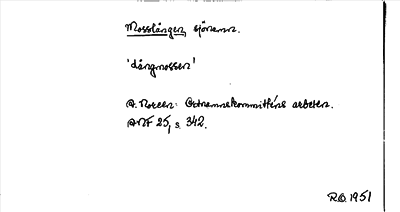 Mosslången, sjönamn.
'långmossen'
A. Noreen: Ortnamnskommitténs arbeten.
ANF 25, s. 342.
R.O. 1951